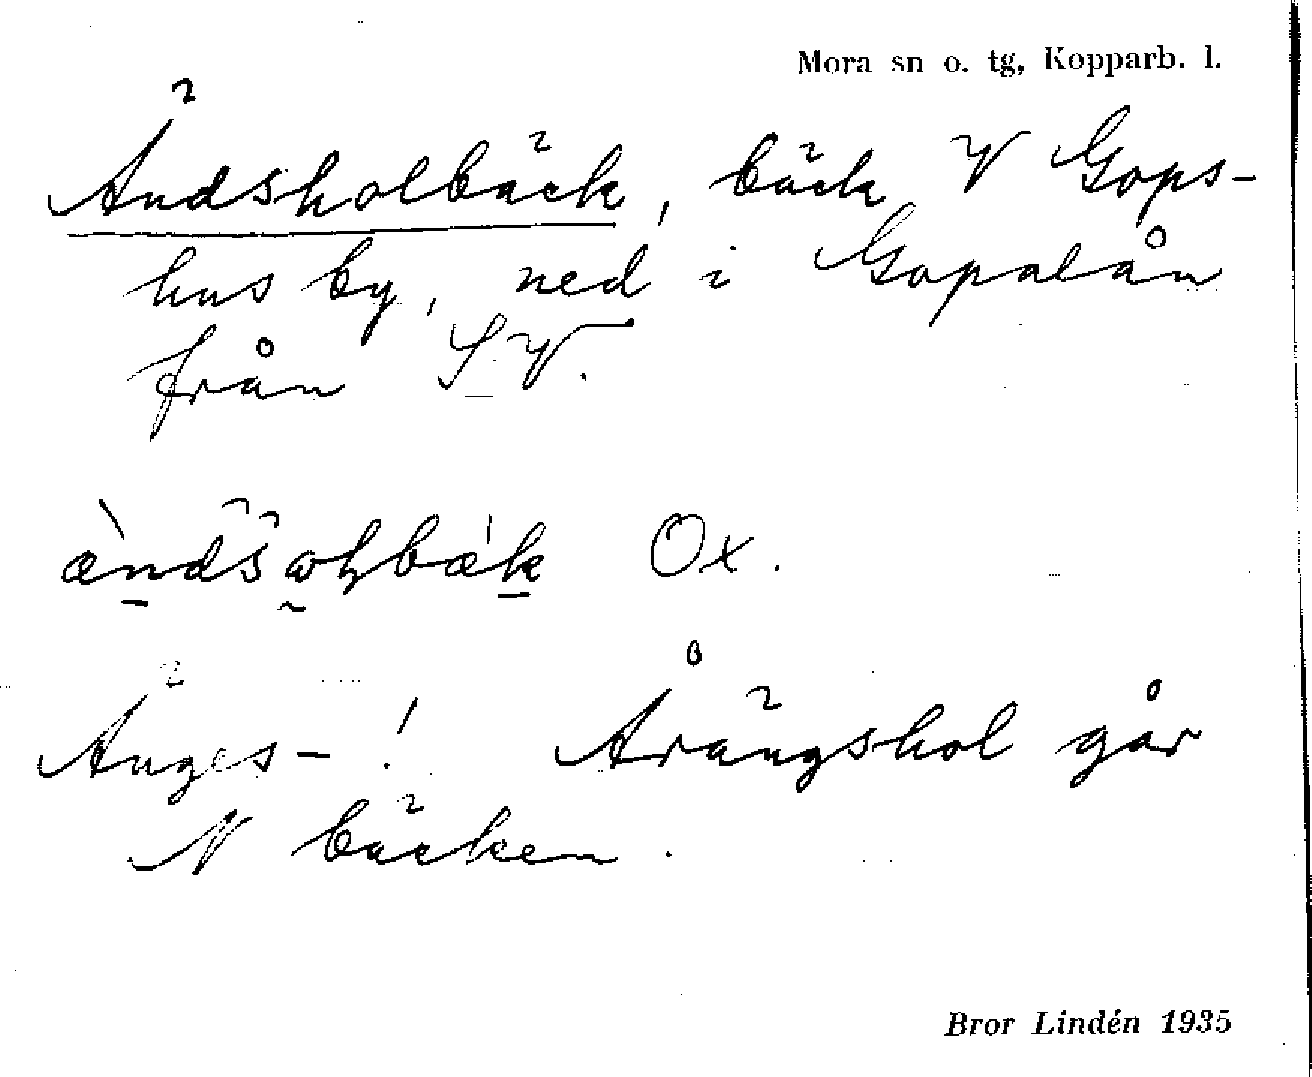 Mora sn o. tg, Kopparb. l.
Ändsholbäck, bäck V Gops-
hus by, ned i Gopalån
från SV.
Ox.
Änges-! Årängshol går
N bäcken.
Bror Lindén 1935